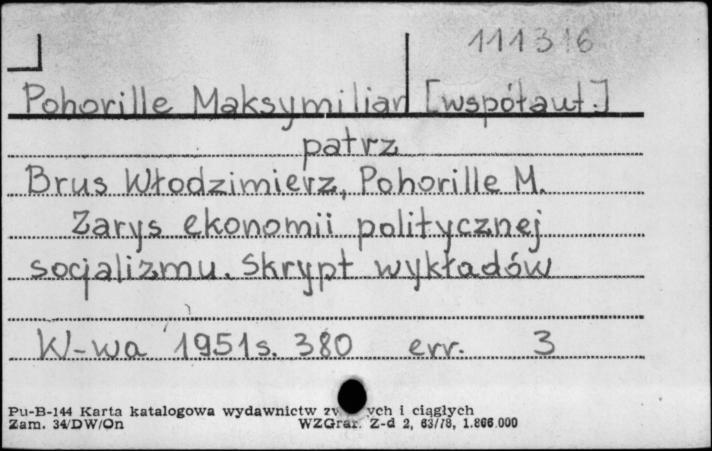 111316
Pohorille Maksymilian [współaut.]
patrz
Brus Włodzimierz, Pohorille M.
Zarys ekonomii politycznej
socjalizmu. Skrypt wykładów
W-wa 1951 s. 380 err. 3
Pu-B-144 Karta katalogowa wydawnictw i ciągłych
Zam. 34/DW/On WZGraf. Z-d 2, 63/78, 1.866.000